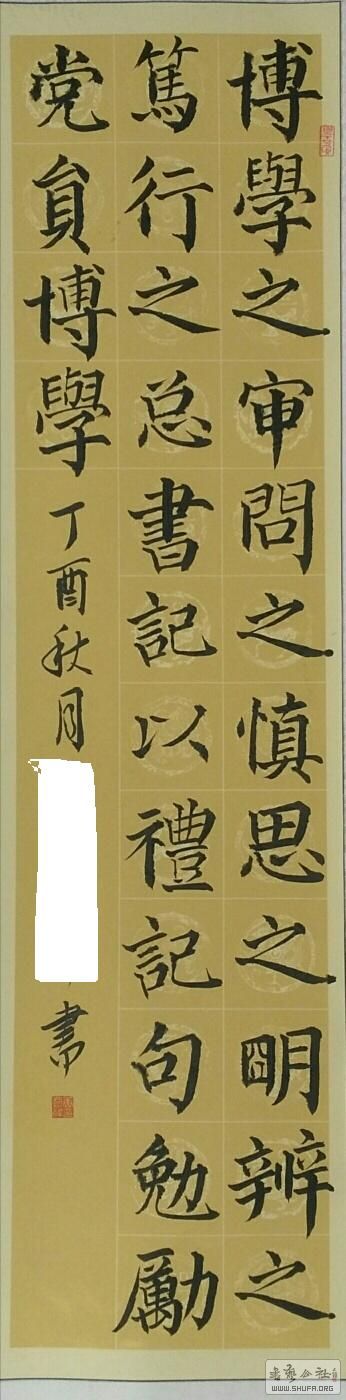 博學之审問之慎思之明辨之
篤行之总書記以禮記句勉励
党員博學丁酉秋月
書
WWW.SHUFA.ORG